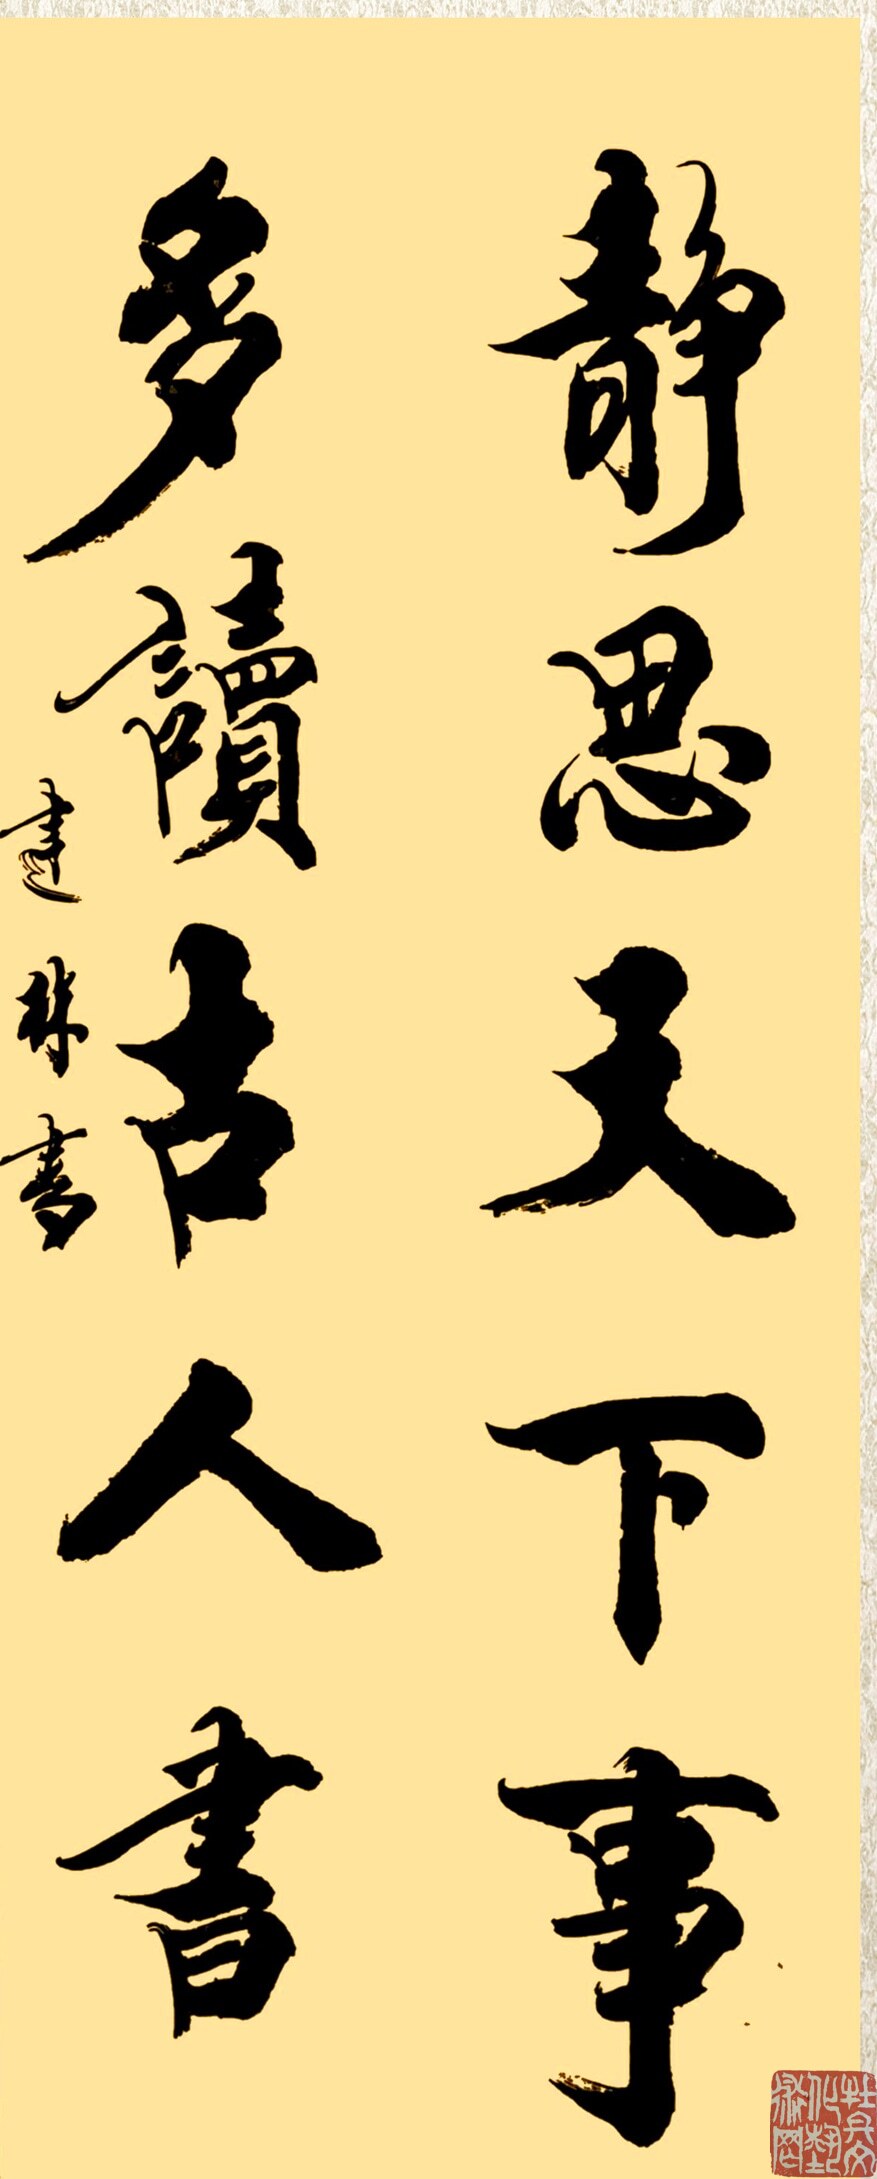 靜思天下事
多讀古人書
建林書